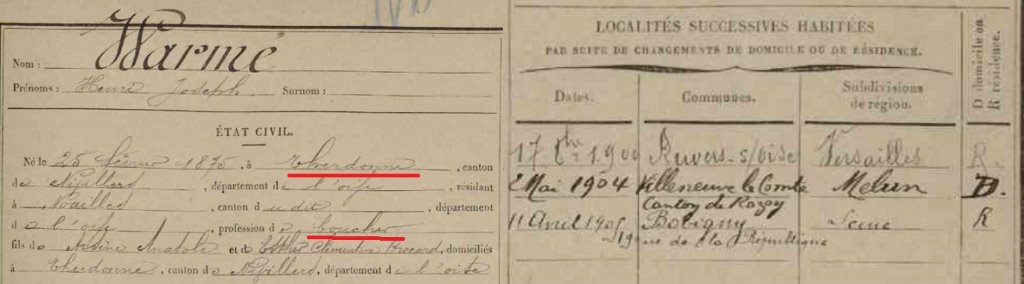 Warmé
Nom :
Prénoms : Henri Joseph. Surnom :
ÉTAT CIVIL.
Né le 25 février 1875, à Therdonne, canton
de Nivillers, département de l'oise, résidant
à Noailles, canton du dit, département
de l'oise, profession de boucher
fils de Arsène Anatole et de Esther Clémentine Brocard, domiciliés
à Therdonne, canton de Nivillers, département de l'oise
LOCALITÉS SUCCESSIVES HABITÉES
PAR SUITE DE CHANGEMENTS DE DOMICILE OU DE RÉSIDENCE.
Dates. Communes. Subdivisions de région. D domicile ou R résidence.
17 1900 Auvers-s/Oise Versailles R.
2 Mai 1904 Villeneuve le Comte Melun D.
Canton de Rozoy
11 Avril 1905 Bobigny Seine R
de la République